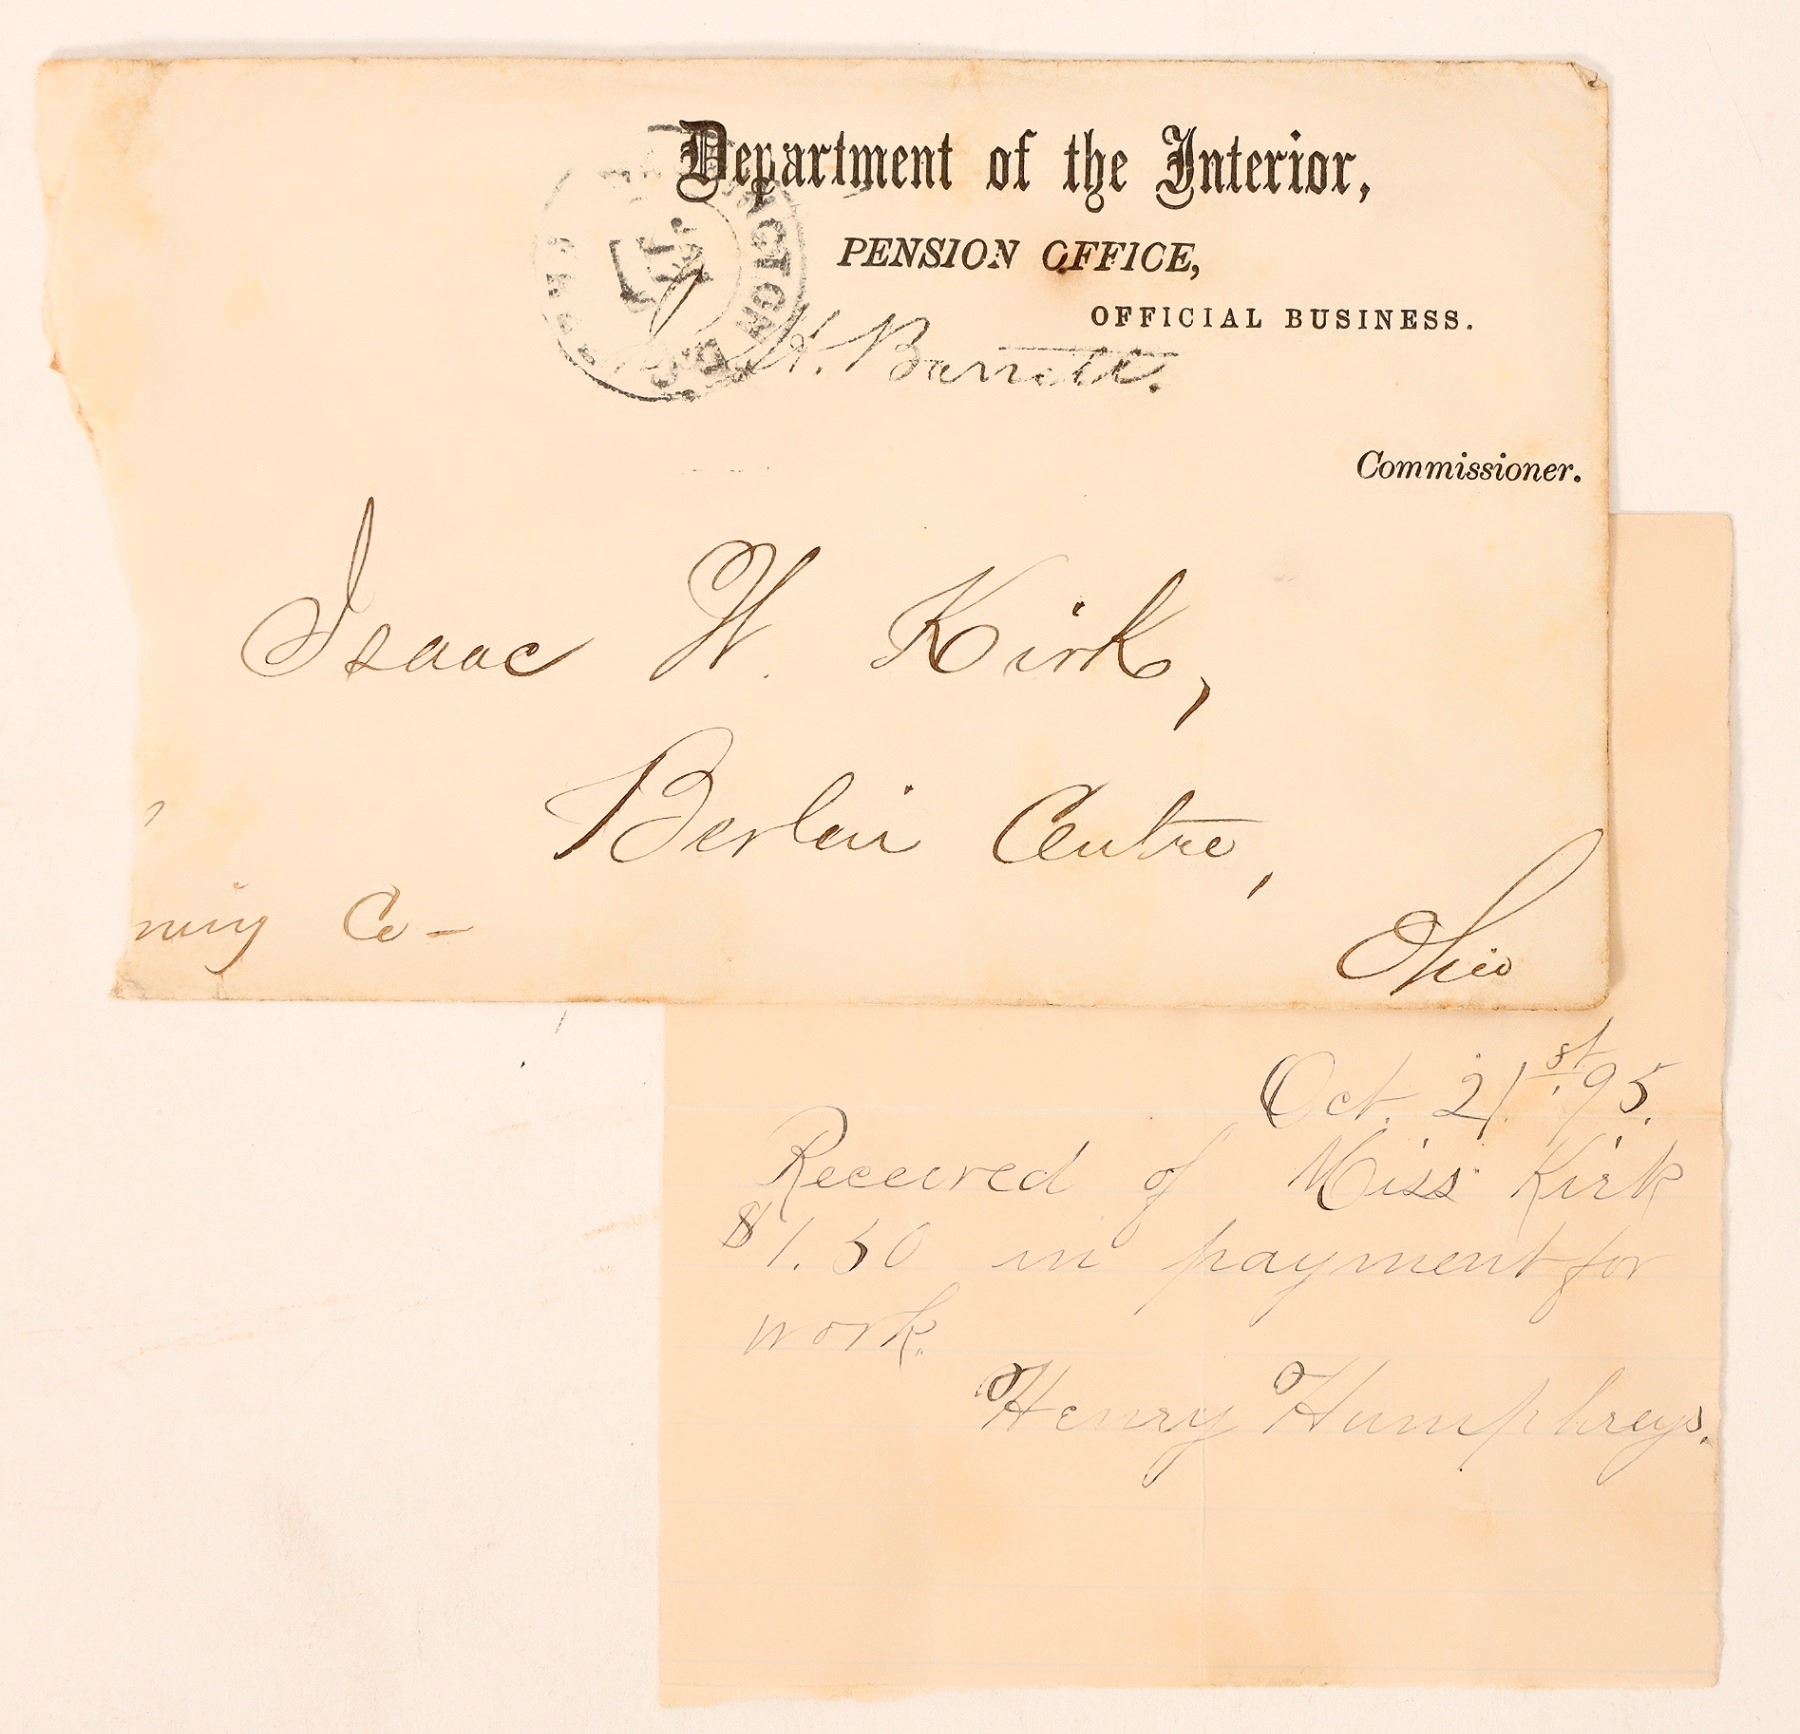 Department of the Interior,
PENSION OFFICE,
OFFICIAL BUSINESS.
H. Barrett.
Commissioner.
Isaac W. Kirk,
Berlin Centre,
ning Co-
Ohio
Oct. 21.st 95.
Received of Miss Kirk
$1.50 in payment for
work.
Henry Humphreys.